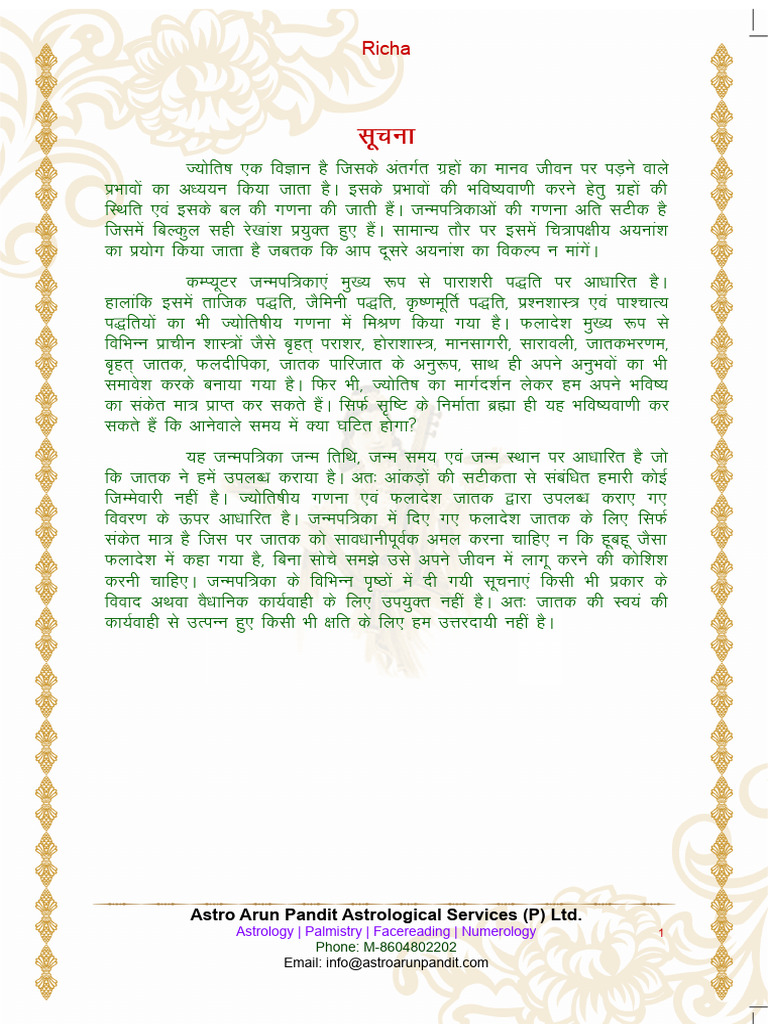 Richa
सूचना
ज्योतिष एक विज्ञान है जिसके अंतर्गत ग्रहों का मानव जीवन पर पड़ने वाले
प्रभावों का अध्ययन किया जाता है। इसके प्रभावों की भविष्यवाणी करने हेतु ग्रहों की
स्थिति एवं इसके बल की गणना की जाती हैं। जन्मपत्रिकाओं की गणना अति सटीक है
जिसमें बिल्कुल सही रेखांश प्रयुक्त हुए हैं। सामान्य तौर पर इसमें चित्रापक्षीय अयनांश
का प्रयोग किया जाता है जबतक कि आप दूसरे अयनांश का विकल्प न मांगें।
कम्प्यूटर जन्मपत्रिकाएं मुख्य रूप से पाराशरी पद्धति पर आधारित है।
हालांकि इसमें ताजिक पद्धति, जैमिनी पद्धति, कृष्णमूर्ति पद्धति, प्रश्नशास्त्र एवं पाश्चात्य
पद्धतियों का भी ज्योतिषीय गणना में मिश्रण किया गया है। फलादेश मुख्य रूप से
विभिन्न प्राचीन शास्त्रों जैसे बृहत् पराशर, होराशास्त्र, मानसागरी, सारावली, जातकभरणम,
बृहत् जातक, फलदीपिका, जातक पारिजात के अनुरूप, साथ ही अपने अनुभवों का भी
समावेश करके बनाया गया है। फिर भी, ज्योतिष का मार्गदर्शन लेकर हम अपने भविष्य
का संकेत मात्र प्राप्त कर सकते हैं। सिर्फ सृष्टि के निर्माता ब्रह्मा ही यह भविष्यवाणी कर
सकते हैं कि आनेवाले समय में क्या घटित होगा?
यह जन्मपत्रिका जन्म तिथि, जन्म समय एवं जन्म स्थान पर आधारित है जो
कि जातक ने हमें उपलब्ध कराया है। अतः आंकड़ों की सटीकता से संबंधित हमारी कोई
जिम्मेवारी नहीं है। ज्योतिषीय गणना एवं फलादेश जातक द्वारा उपलब्ध कराए गए
विवरण के ऊपर आधारित है। जन्मपत्रिका में दिए गए फलादेश जातक के लिए सिर्फ
संकेत मात्र है जिस पर जातक को सावधानीपूर्वक अमल करना चाहिए न कि हूबहू जैसा
फलादेश में कहा गया है, बिना सोचे समझे उसे अपने जीवन में लागू करने की कोशिश
करनी चाहिए। जन्मपत्रिका के विभिन्न पृष्ठों में दी गयी सूचनाएं किसी भी प्रकार के
विवाद अथवा वैधानिक कार्यवाही के लिए उपयुक्त नहीं है। अतः जातक की स्वयं की
कार्यवाही से उत्पन्न हुए किसी भी क्षति के लिए हम उत्तरदायी नहीं है।
Astro Arun Pandit Astrological Services (P) Ltd.
Astrology | Palmistry | Facereading | Numerology
1
Phone: M-8604802202
Email: info@astroarunpandit.com